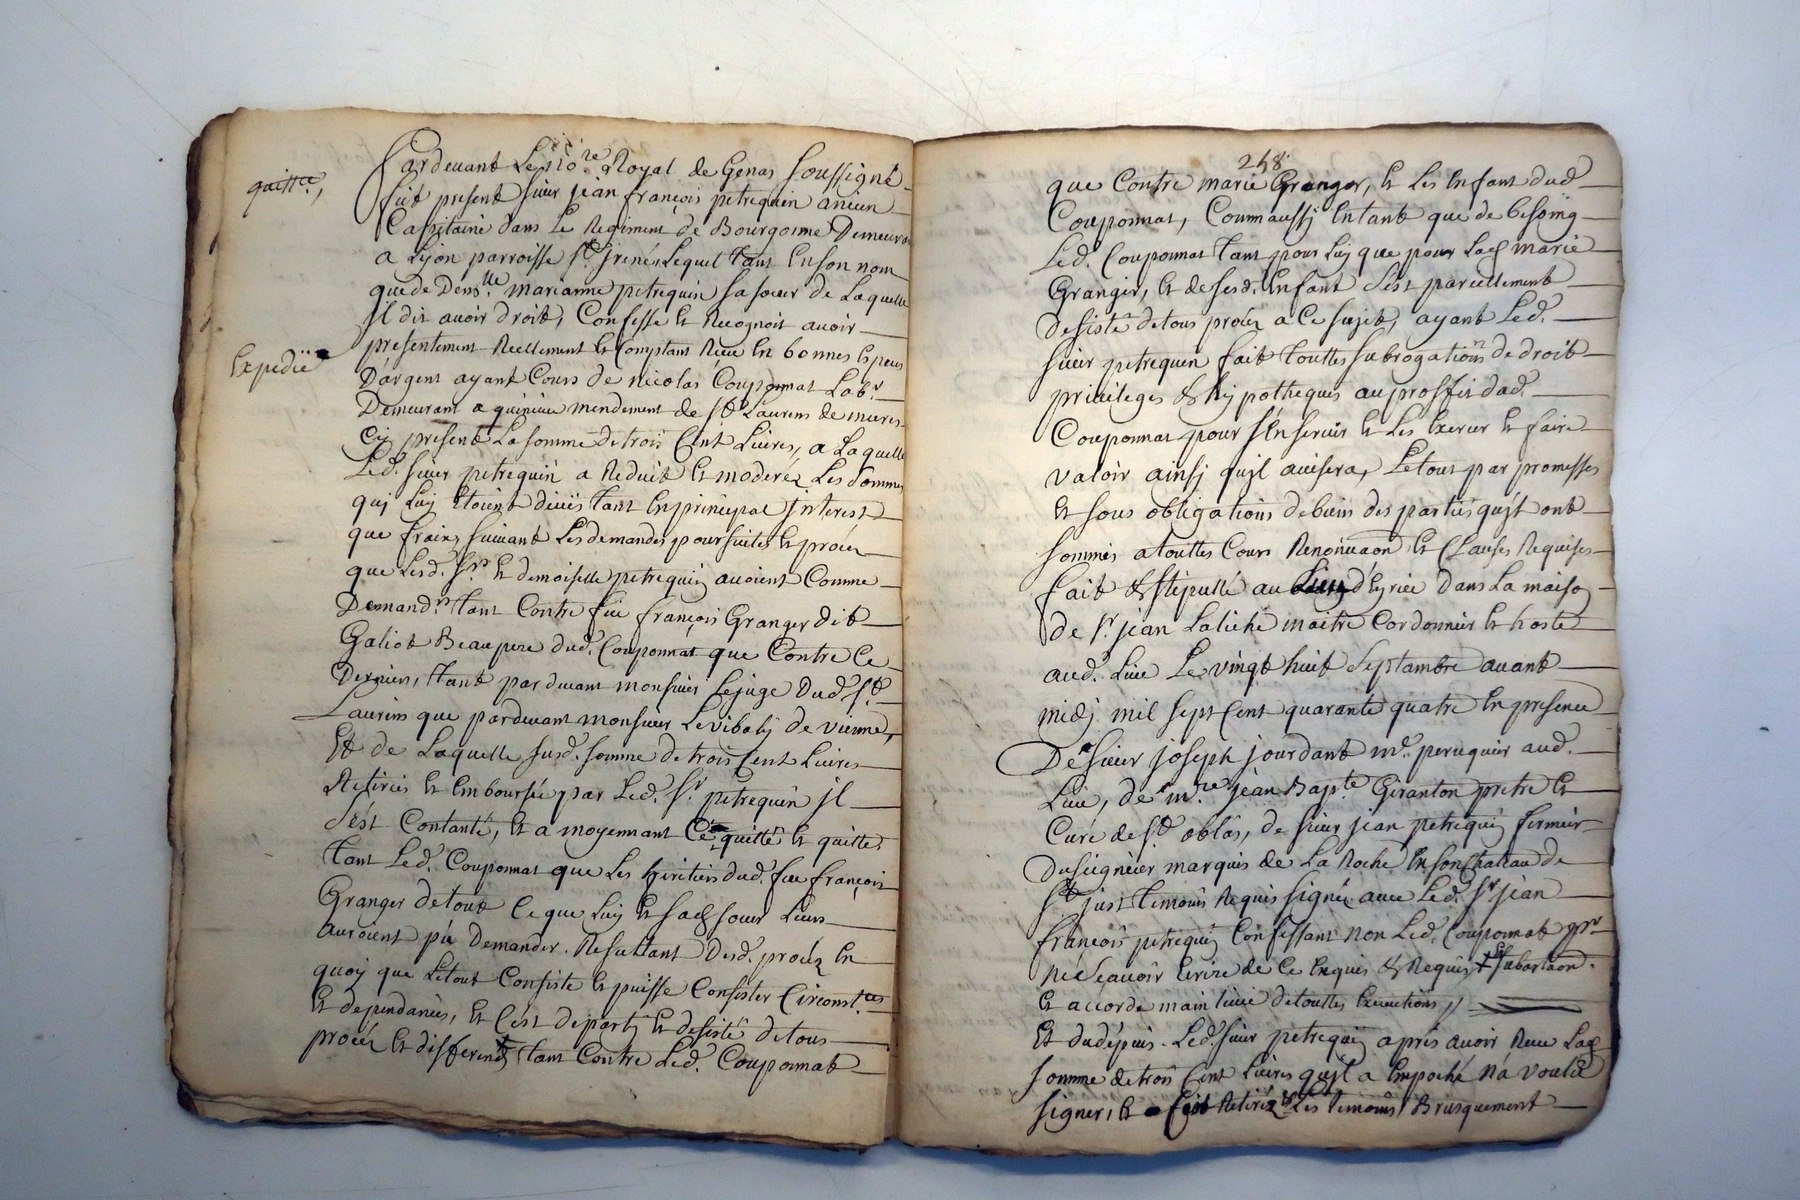 quitt.ce,
Expedié
Pardevant Le no.re Royal de Genas Soussigné
fut present sieur jean françois petrequin ancien
Capitaine dans Le Regiment de Bourgonne Demeurant
a Lyon parroisse St jrenée Lequel tant En son nom
que de Dem.lle marianne petrequin sa soeur de Laquelle
jl dit avoir droit, Confesse Et Recognoit avoir
presentement Reellement Et Comptant Receu En bonnes Especes
D'argent ayant Cours de nicolas Couponnat Lab.r
Demeurant a quincieu mendement de St Laurens de mures
Cy present La somme de trois Cent Livres, a Laquelle
Led. sieur petrequin a Reduit Et moderéz Les sommes
qui Luy Etoient deües tant En principal jnterest
que fraix, suivant Les demandes poursuites Et procez
que Lesd. Srs Et demoiselle petrequin avoient Comme
Demand.rs tant Contre feu françois Granger dit
Galiot Beaupere dud. Couponnat que Contre Ce
Dernier, tant par devant monsieur Le juge Dud. St
Laurens que pardevant monsieur Le vibaly de vienne,
Et de Laquelle susd. somme de trois Cent Livres
Retirées Et Emboursée par Led. Sr petrequin jl
s'est Contanté, Et a moyennant Ce quitté Et quitte
tant Led. Couponnat que Les heritiers dud. feu françois
Granger de tout Ce que Luy Et sad. soeur Leurs
auroient pu Demander Resultant Desd. procéz En
quoy que Letout Consiste Et puisse Consister Circonst.ces
Et dependances, Et s'est departy Et desisté de tous
procéz Et differends tant Contre Led. Couponnat
248
que Contre marie Granger, Et Les Enfant dud
Couponnat, Comm aussy Entant que de besoing
Led. Couponnat tant pour Luy que pour Lad marie
Granger, Et de sesd. Enfant s'est pareillement
desisté de tous procéz a Ce sujet, ayant Led.
sieur petrequin fait touttes subrogations de droit
privileges & hypotheques au proffit dud.
Couponnat pour s'en servir Et Les Exercer Et faire
valoir ainsy qu'jl avisera, Letout par promesses
Et sous obligations de biens des parties qu'jl ont
sommis a touttes Cours Renonciaon Et Clauses Requises
fait & stipullé au Lieu d'heyrieu Dans La maison
de Sr jean Laliche maitre Cordonnier Et hoste
aud. Lieu Le vingt huit Septambre avant
midy mil sept Cent quarante quatre En presence
De sieur joseph jourdant me. peruquier aud.
Lieu, de m.re jean Bap.te Giranton pretre Et
Curé de St oblas, de sieur jean petrequin fermier
Du seigneur marquis de La Roche En son Chateau de
St just temoins Requis signé avec Led. Sr jean
françois petrequin Confessant non Led. Couponnat pr
ne sçavoir Ecrire de Ce Enquis & Requis
Et accorde main Levée de touttes Executions //
Et du dépuis Led. sieur petrequin apris avoir Receu Lad
somme de trois Cent Livres qu'jl a Empoché n'a voulu
signer, Et s'est Retiréz Les temoins Brusquement